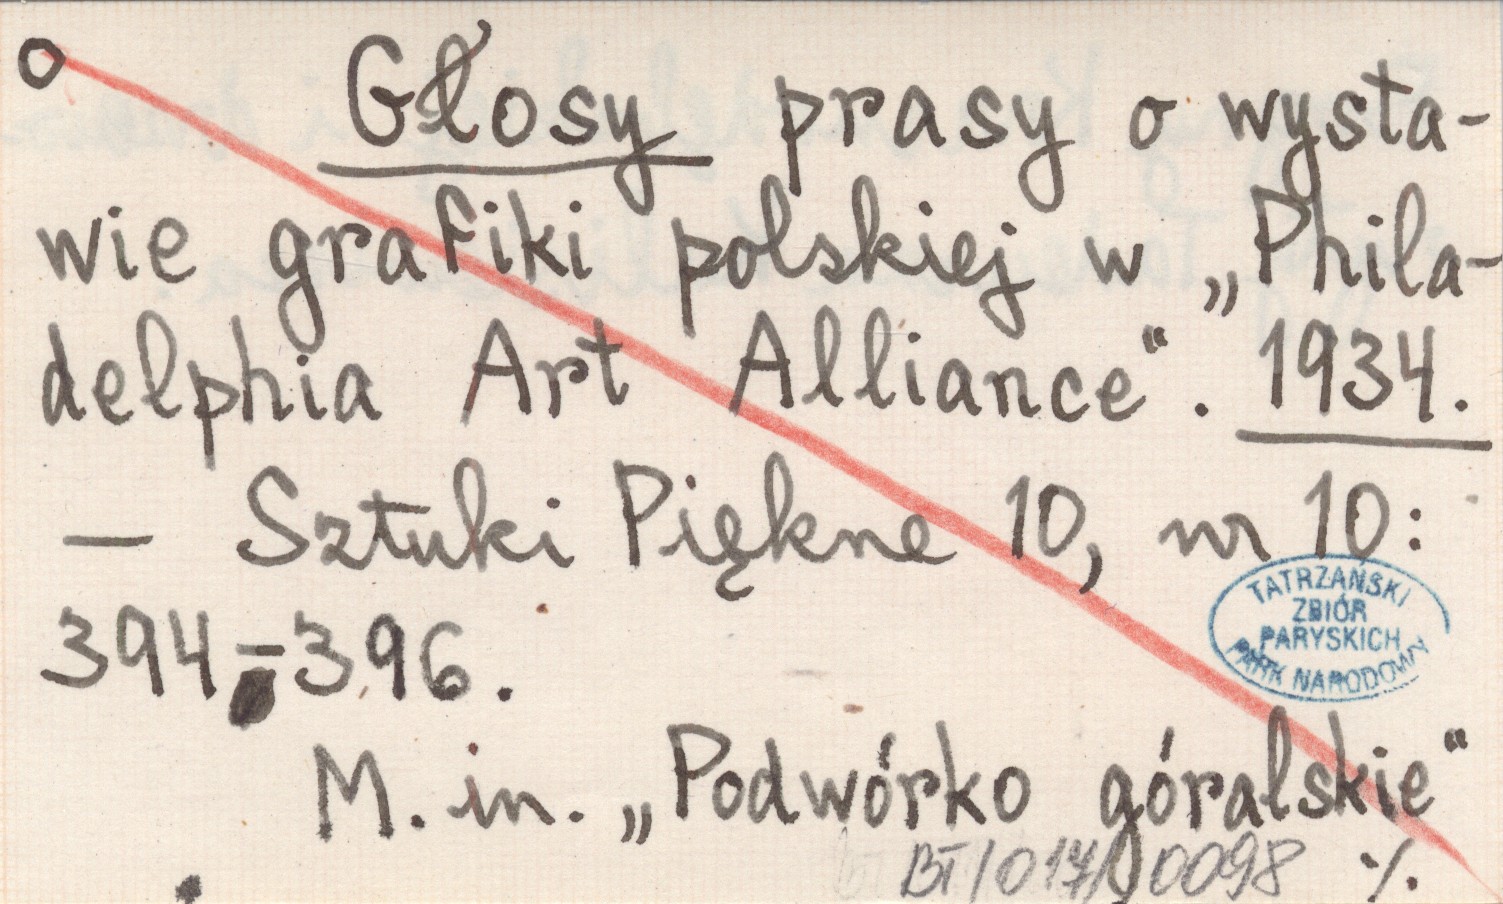 Głosy prasy o wysta-
wie grafiki polskiej w „Phila-
delphia Art Alliance“. 1934.
— Sztuki Piękne 10, nr 10:
394-396.
TATRZAŃSKI
ZBIÓR
PARYSKICH
PARK NARODOWY
M. in. „Podwórko góralskie“
BT/017/0098 ·/.